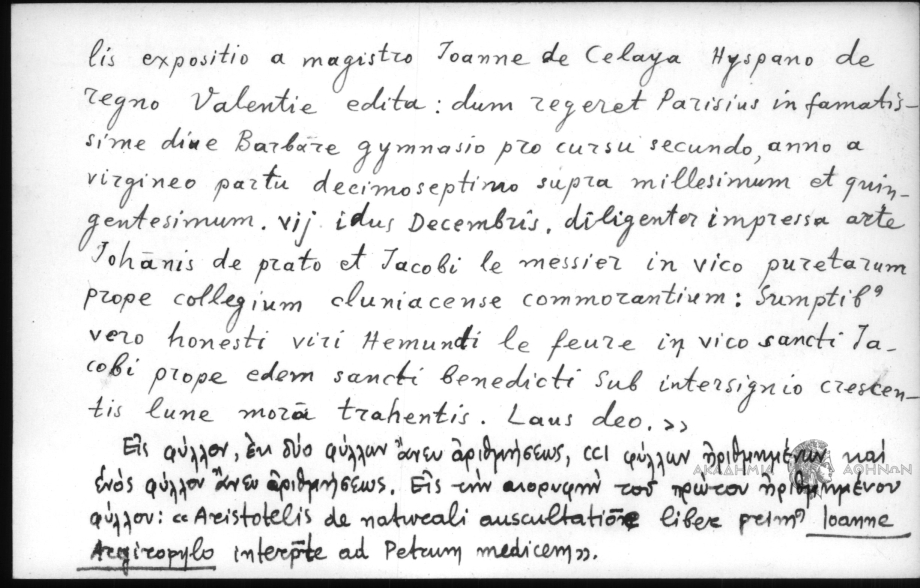 lis expositio a magistro Joanne de Celaya Hyspano de
regno Valentie edita: dum regeret Parisius in famatis-
sime diue Barbāre gymnasio pro cursu secundo, anno a
virgineo partu decimoseptimo supra millesimum et quin-
gentesimum. vij idus Decembris. diligenter impressa arte
Johānis de prato et Jacobi le messier in vico puretarum
prope collegium cluniacense commorantium: Sumptibꝰ
vero honesti viri Hemundi le feure in vico sancti Ja-
cobi prope edem sancti benedicti sub intersignio crescen-
tis lune morā trahentis. Laus deo.»
Εἰς φύλλον, ἐκ δύο φύλλων ἄνευ ἀριθμήσεως, CCI φύλλων ἠριθμημένων καὶ
ἑνὸς φύλλου ἄνευ ἀριθμήσεως. Εἰς τὴν κορυφὴν τοῦ πρώτου ἠριθμημένου
φύλλου: «Aristotelis de naturali auscultatiōe liber primꝰ Ioanne
Argiropylo interp̄te ad Petrum medicem».
ΑΚΑΔΗΜΙΑ ΑΘΗΝΩΝ